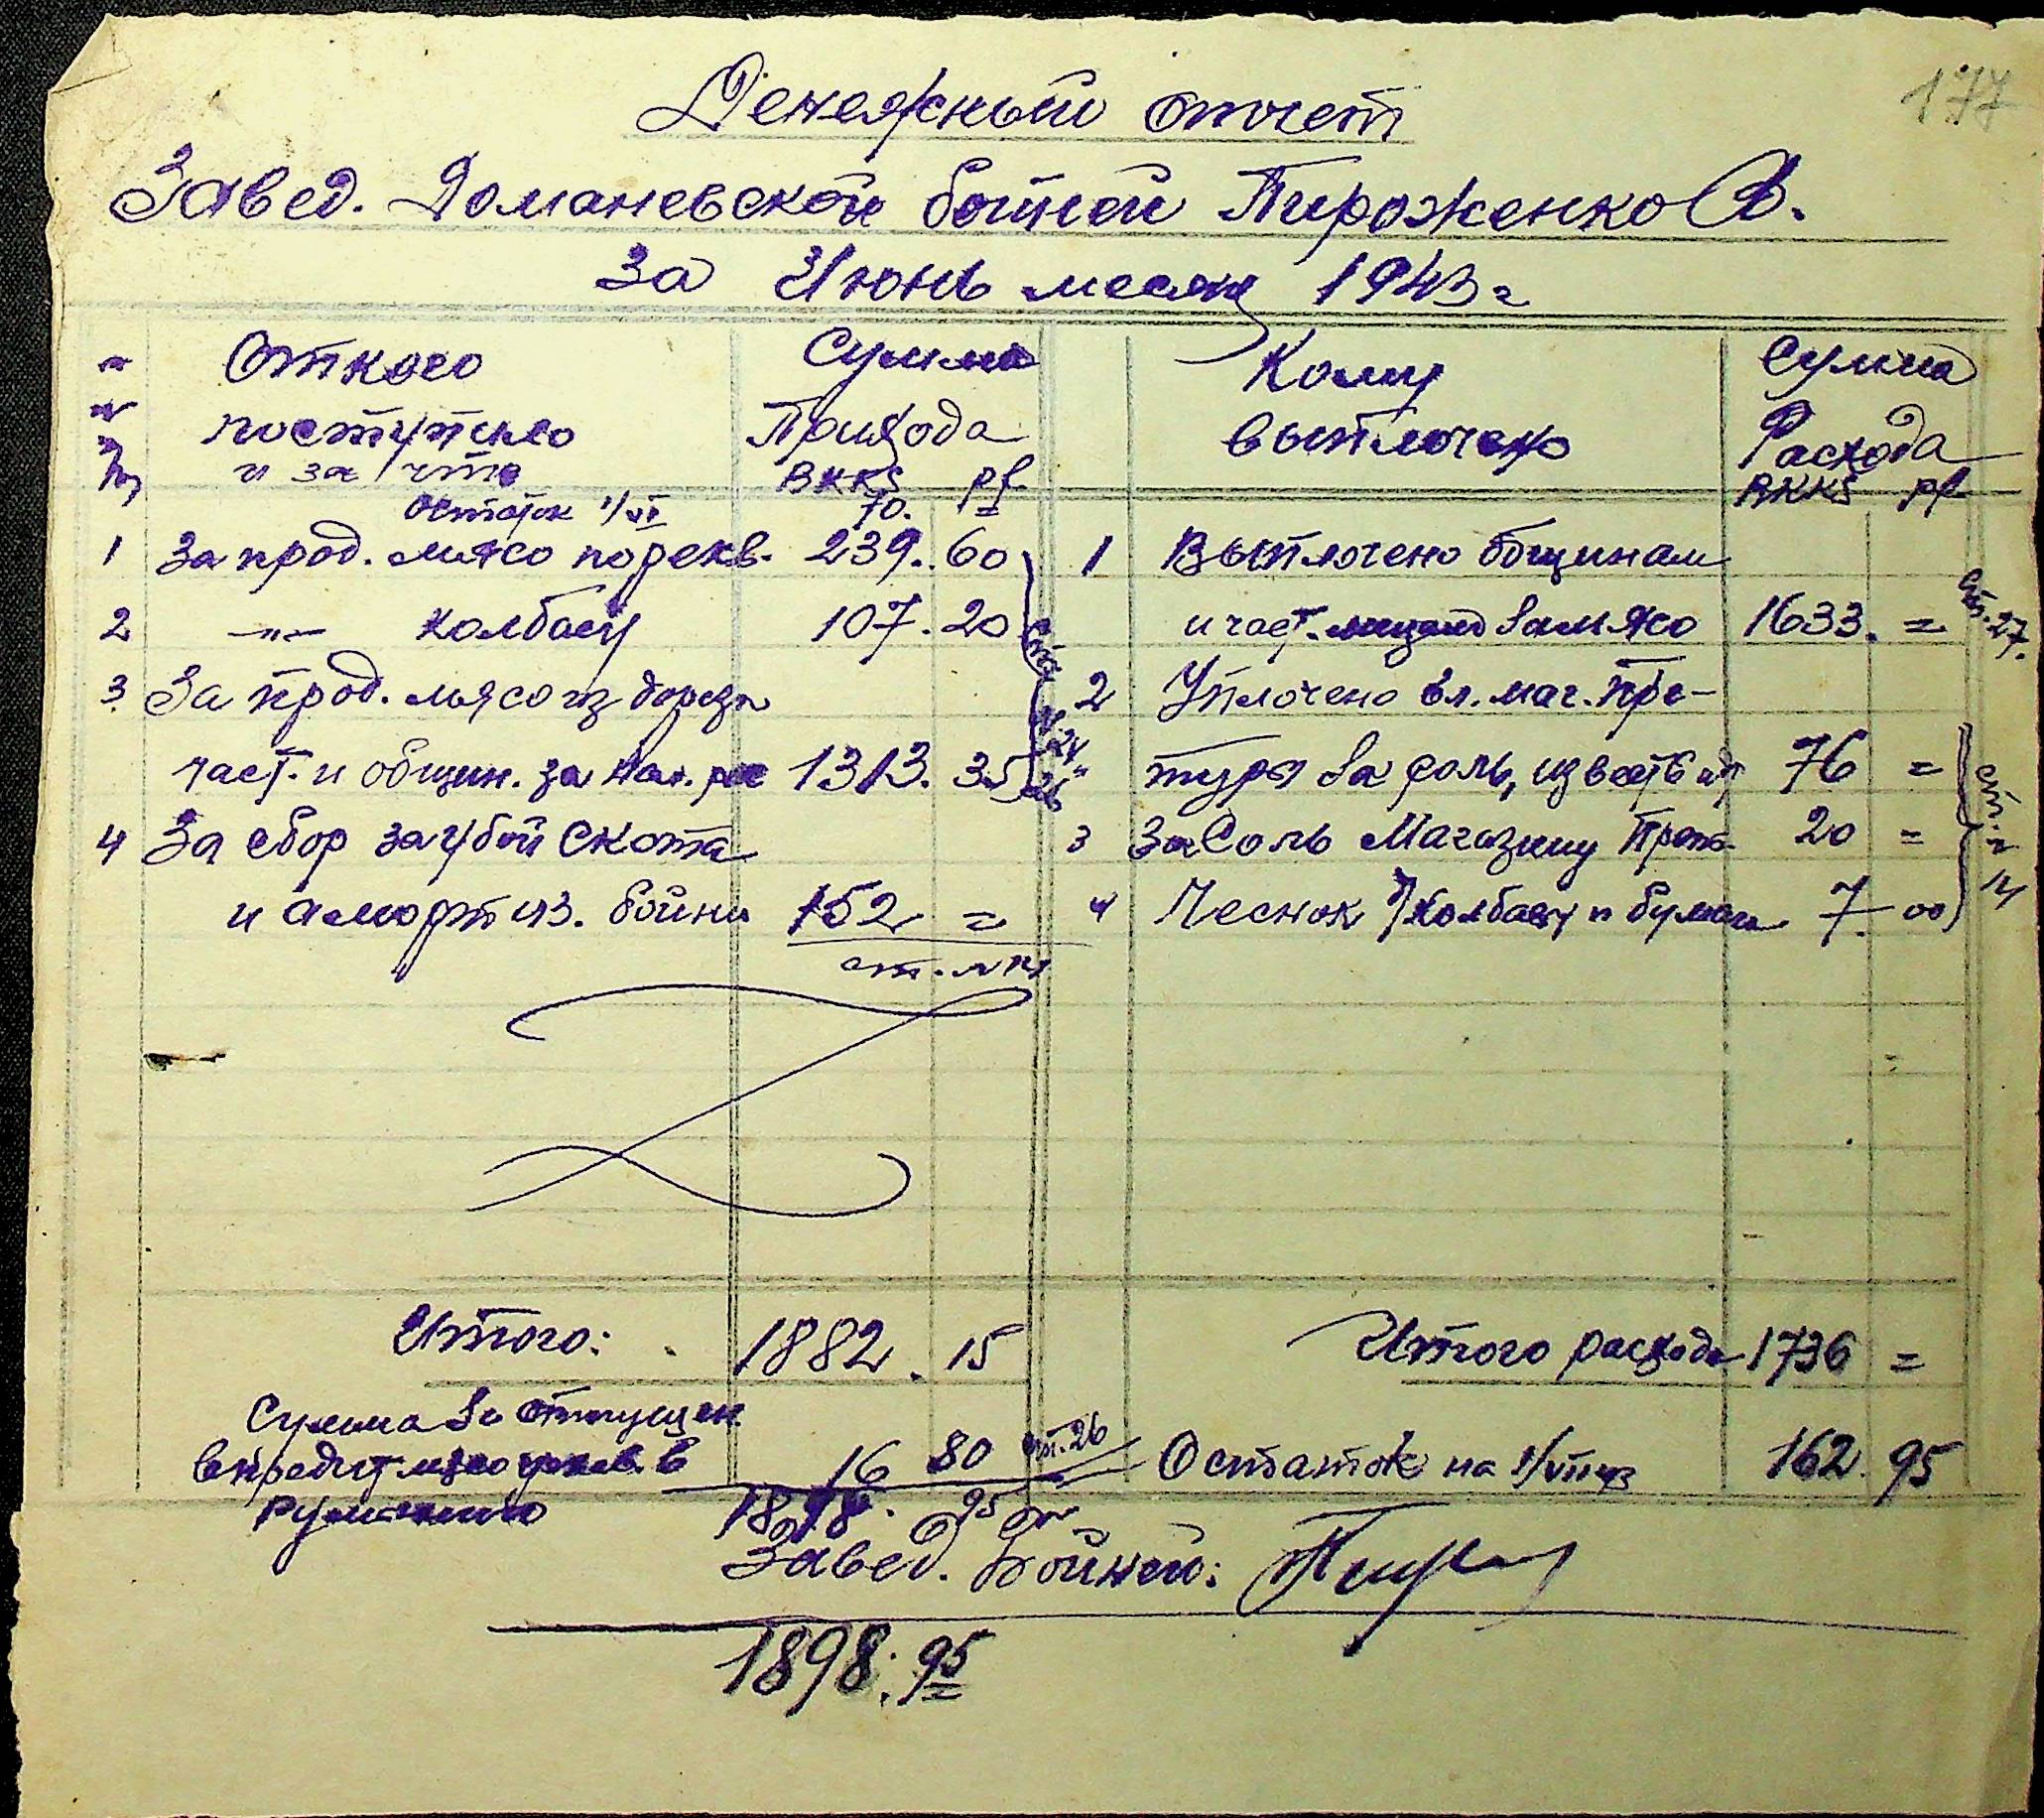 177
Денежный отчет
Завед. Доманевской бойней Пироженко А.
за Июнь месяц 1943 г
От кого Сумма Кому Сумма
поступило Прихода выплочено Расхода
и за что RKKS pf. RKKS pf
Остаток 1/VI 70. =
1 За прод. мясо по рекв. 239. 60 1 Выплочено общинам
2 -"- колбасу 107. 20 и част. лицам за мясо 1633. = ст. 27.
3. За прод. мясо из дорезу 2 Уплочено
част. и общин. за нал. 1313. 35 за соль, известь 76 =
4 За сбор за убой скота 3 За Соль Магазину 20 =
и амортиз. бойни 152 = 4 Чеснок колбасу и бумага 7. 00
ст. 14
Итого: 1882. 15 Итого расхода 1736 =
Сумма за отпущен.
в кредит мясо в 16 80 ст. 26 Остаток на 1/VII 43 162. 95
Румынию 1898. 95
Завед. Бойней:
1898. 95